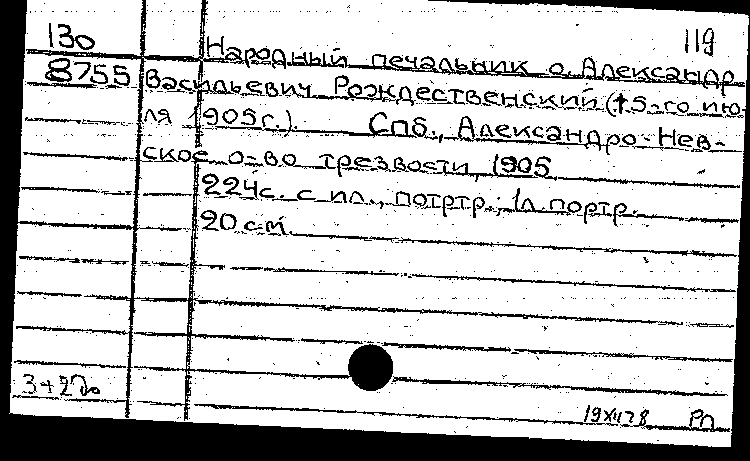 130 119
Народный печальник о. Александр
8755 Васильевич Рождественский (†5-го ию-
ля 1905г.). Спб., Александро-Нев-
ское о-во трезвости, 1905
224с. с ил., потртр.; 1л. портр.
20 см
3+2
19XII78 РП